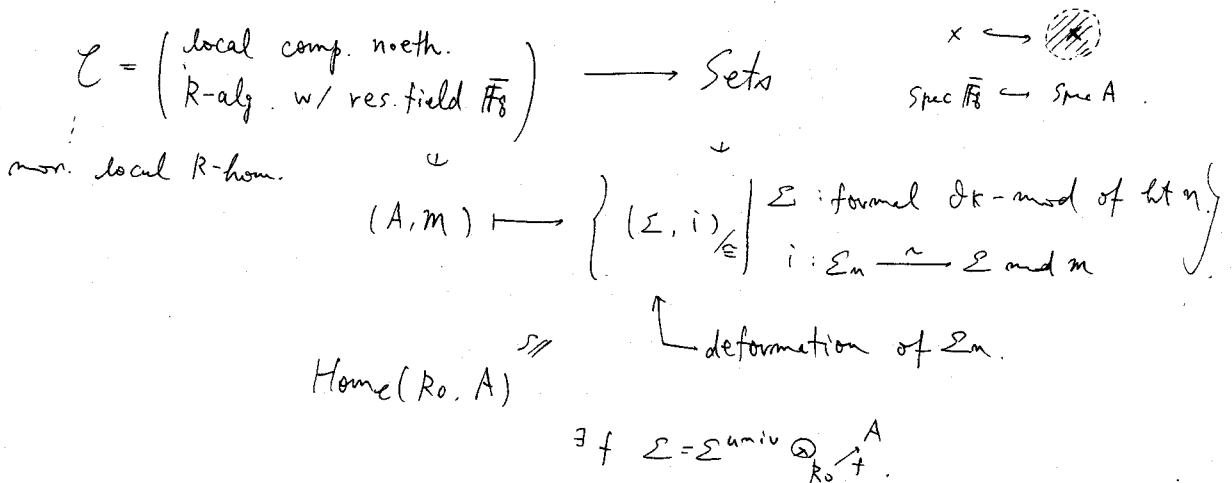 𝒞 = ( local comp. noeth. R-alg. w/ res. field F̄q ) ⟶ Sets
x ↪ x
Spec F̄q ↪ Spec A.
mor. local R-hom.
(A, m) ⟼ { (Σ, i)/≅ | Σ : formal 𝒪K-mod of ht n. i : Σn ⥲ Σ mod m }
deformation of Σn.
Hom𝒞(R0, A)
∃f Σ = Σ^univ ⊗R0 ↗f A.